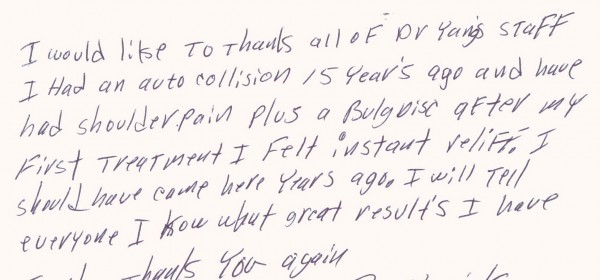 I would like To Thank all oF Dr Yang's STaFF
I Had an auto collision 15 Year's ago and have
had shoulder pain plus a Bulg Disc aFter my
First TreaTmenT I FelT instant relifF. I
should have come here Years ago. I will Tell
everyone I know what great result's I have
Thank You again